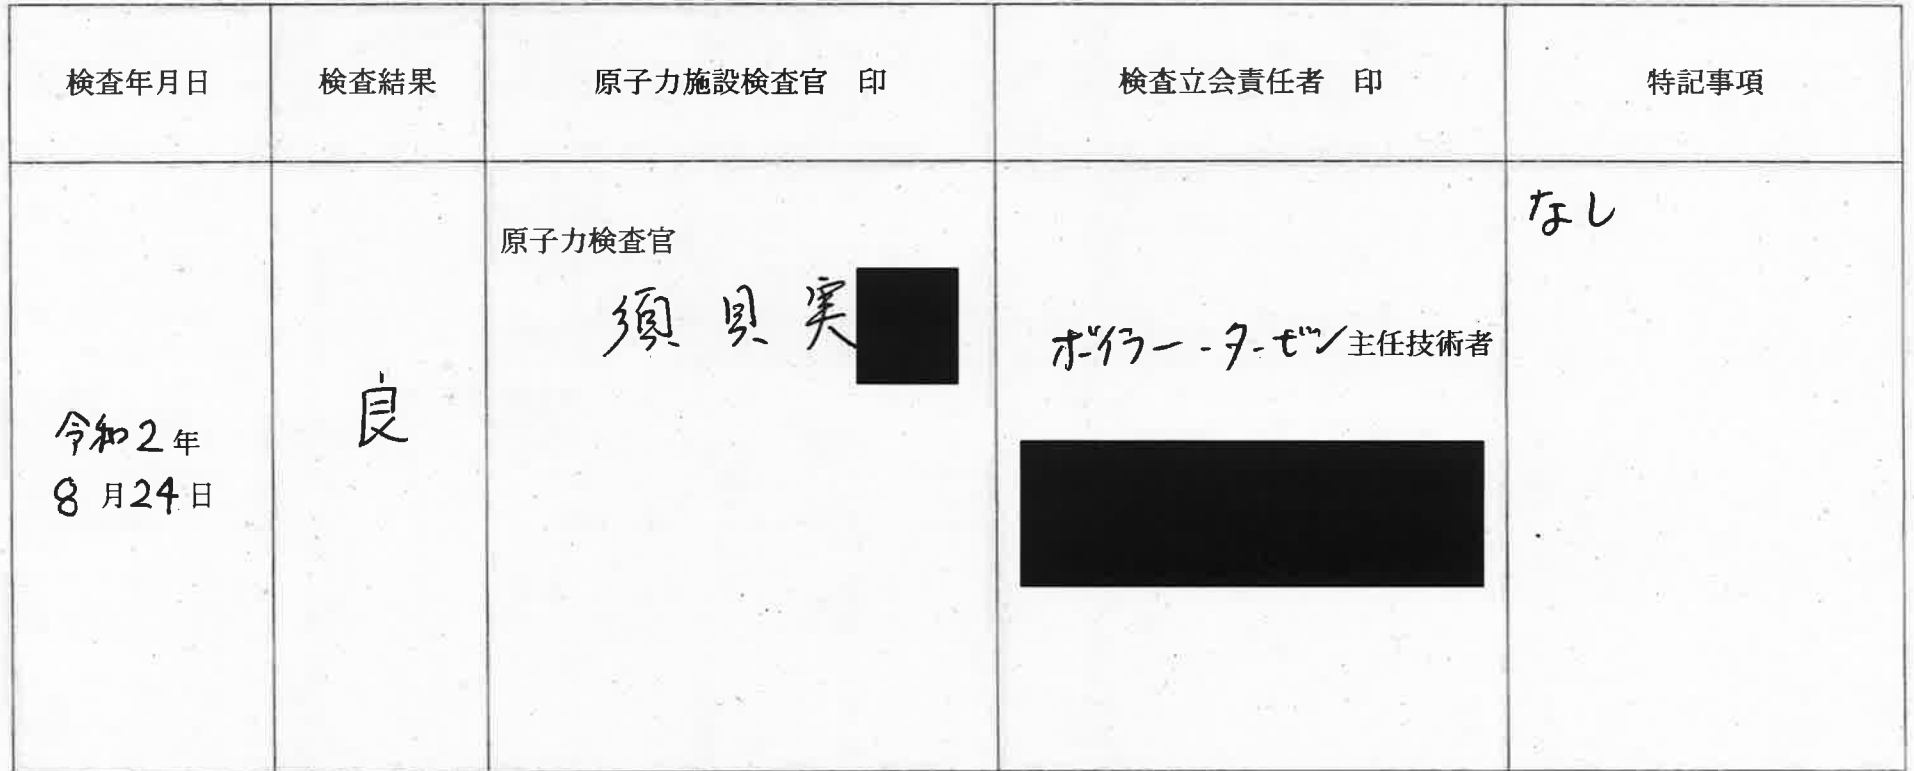 検査年月日
検査結果
原子力施設検査官 印
検査立会責任者 印
特記事項
令和2年
8月24日
良
原子力検査官
須貝実
ボイラー・タービン主任技術者
なし